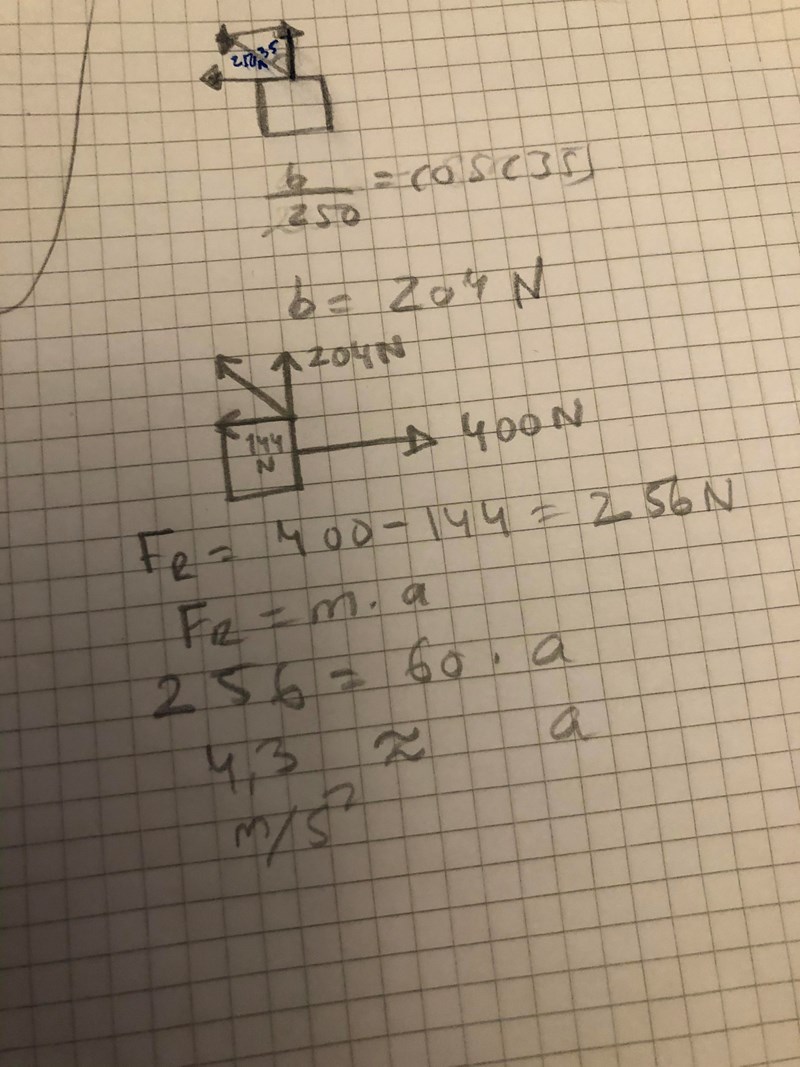 35
250N
b/250 = cos(35)
b = 204 N
204N
144 N
400N
F_R = 400 - 144 = 256 N
F_R = m · a
256 = 60 · a
4,3 ≈ a
m/s²